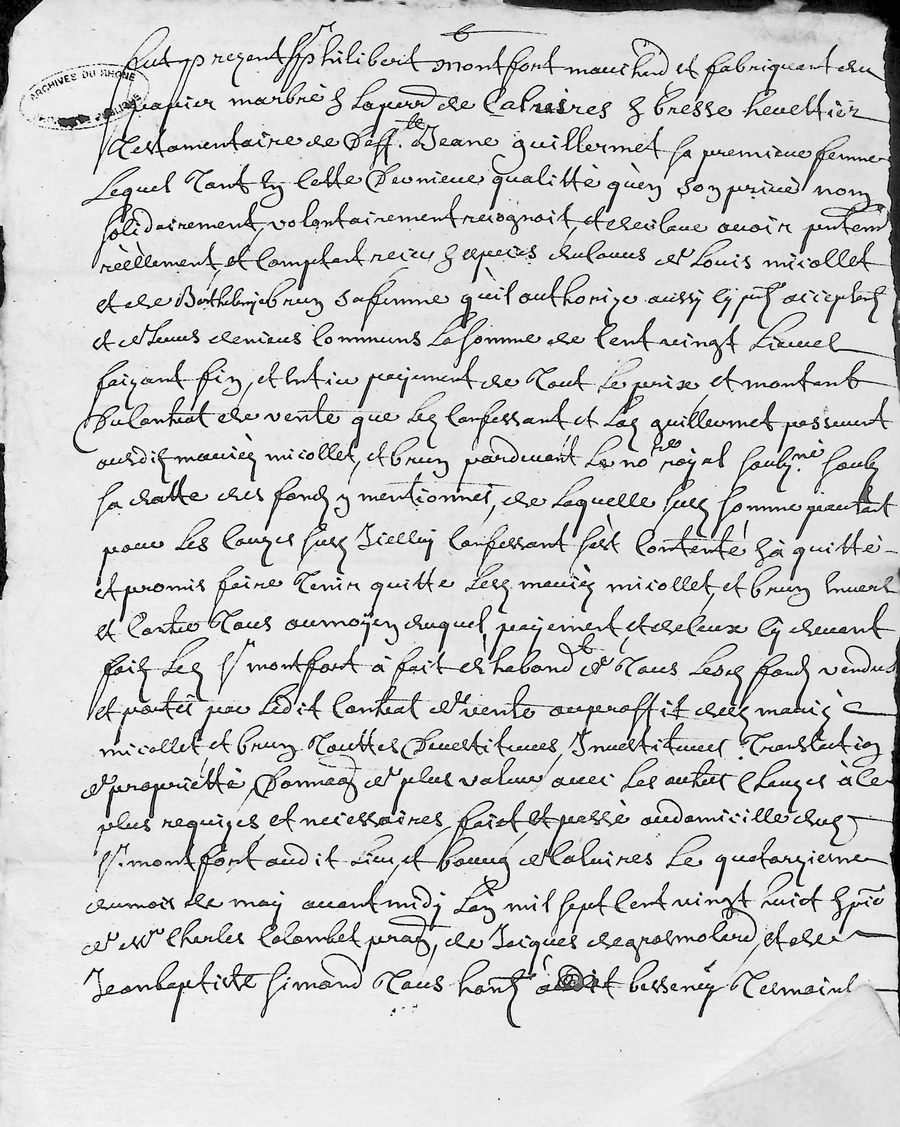 6
fut present Sr philibert montfort marchand et fabriquant du
ARCHIVES DU RHÔNE
papier marbré en la parr de Caluires en bresse herettier
testamentaire de deff.te Jeane guillermet sa premiere femme
Lequel tant en cette derniere qualitté qu'en son privé nom
solidairement, volontairement recognoit, et declare avoir presentem
réèllement, et comptant receu en especes du cours de Louis micollet
et de Berthelemye brun sa femme qu'il authorize aussy cy pnt acceptants
et de Leurs deniers communs La somme de Cent vingt Livres
faizant fin, et entier payement de tout Le prix et montant
Du Contrat de vente que Led Confessant et Lad guillermet passerent
ausdits mariés micollet, et brun pardevant Le nore royal soub.né soub
sa datte des fonds y mentionnés, de Laquelle susd somme partant
pour Les Causes susd Icelluy Confessant s'est Contenté en a quitté
et promis faire tenir quitte Lesd mariés micollet, et brun envers
et Contre tous au moyen duquel payement, et de Ceux cy devant
faits Led Sr montfort à fait et habandt de tous Lesd fonds vendus
et portés par Ledit Contrat de vente au proffit desd mariés
micollet et brun touttes Devestitures Investitures Translation
de propriétté, Dommage de plus valeur, avec Les autres Clauzes à ce
plus requizes et necessaires, faict et passé au domicille dud
Sr montfort audit Lieu, et bourg de Caluires Le quatorzieme
du mois de may avant midy L'an mil sept Cent vingt huict en pnce
de Mre Charles Colombet prat, de Jacques degrosmolard, et de
Jean baptiste simand tous hants audit bessenay tesmoins